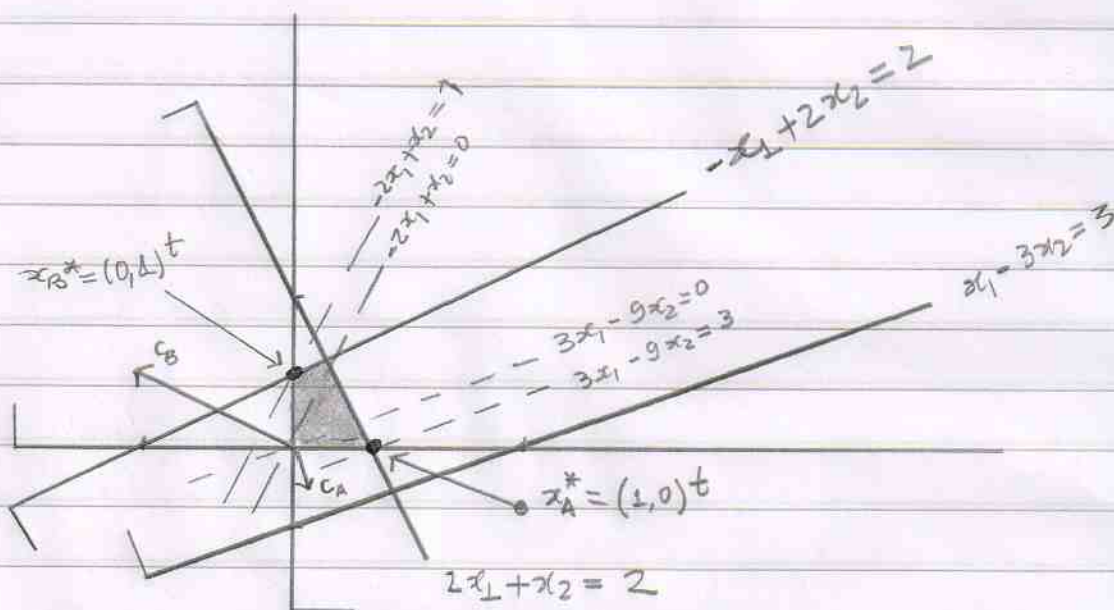 -x₁+2x₂=2
-2x₁+x₂=1
-2x₁+x₂=0
x_B*=(0,1)ᵗ
x₁-3x₂=3
3x₁-9x₂=0
3x₁-9x₂=3
c_B
c_A
x_A*=(1,0)ᵗ
2x₁+x₂=2